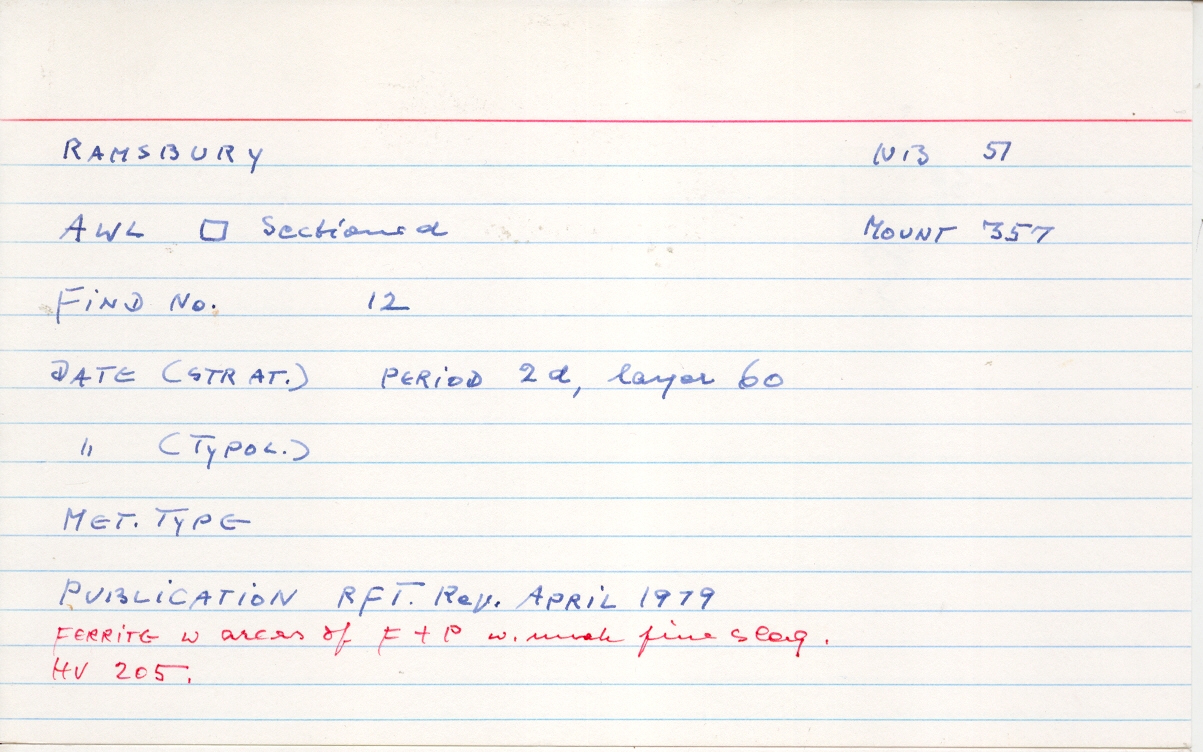 RAMSBURY NB 51
AWL □ Sectioned MOUNT 357
FIND No. 12
DATE (STRAT.) PERIOD 2d, layer 60
" (TYPOL.)
MET. TYPE
PUBLICATION RFT. Rep. APRIL 1979
FERRITE w areas of F + P w. much fine slag.
HV 205.